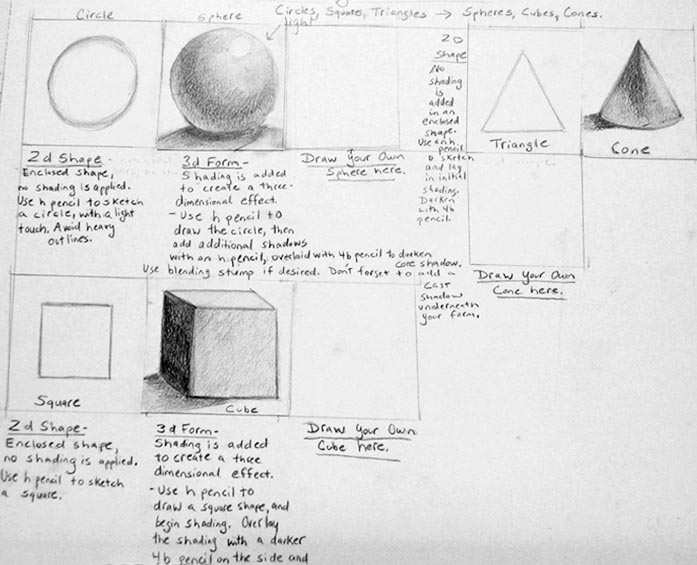 Circle
Sphere
light
Circles, Squares, Triangles → Spheres, Cubes, Cones.
2d Shape-
Enclosed shape,
no shading is applied.
Use h pencil to sketch
a circle, with a light
touch. Avoid heavy
outlines.
3d Form-
Shading is added
to create a three-
dimensional effect.
- Use h pencil to
draw the circle, then
add additional shadows
with an h pencil, overlaid with 4b pencil to darken
core shadow.
Use blending stump if desired. Don't forget to add a
cast
shadow
underneath
your form.
Draw Your Own
Sphere here.
2D
Shape
No
shading
is
added
in an
enclosed
shape.
Use an h
pencil
to sketch
and lay
in initial
shading.
Darken
with 4b
pencil.
Triangle
Cone
Draw Your Own
Cone here.
Square
Cube
2d Shape-
Enclosed shape,
no shading is applied.
Use h pencil to sketch
a square.
3d Form-
Shading is added
to create a three
dimensional effect.
- Use h pencil to
draw a square shape, and
begin shading. Overlay
the shading with a darker
4b pencil on the side and
Draw Your Own
Cube here.